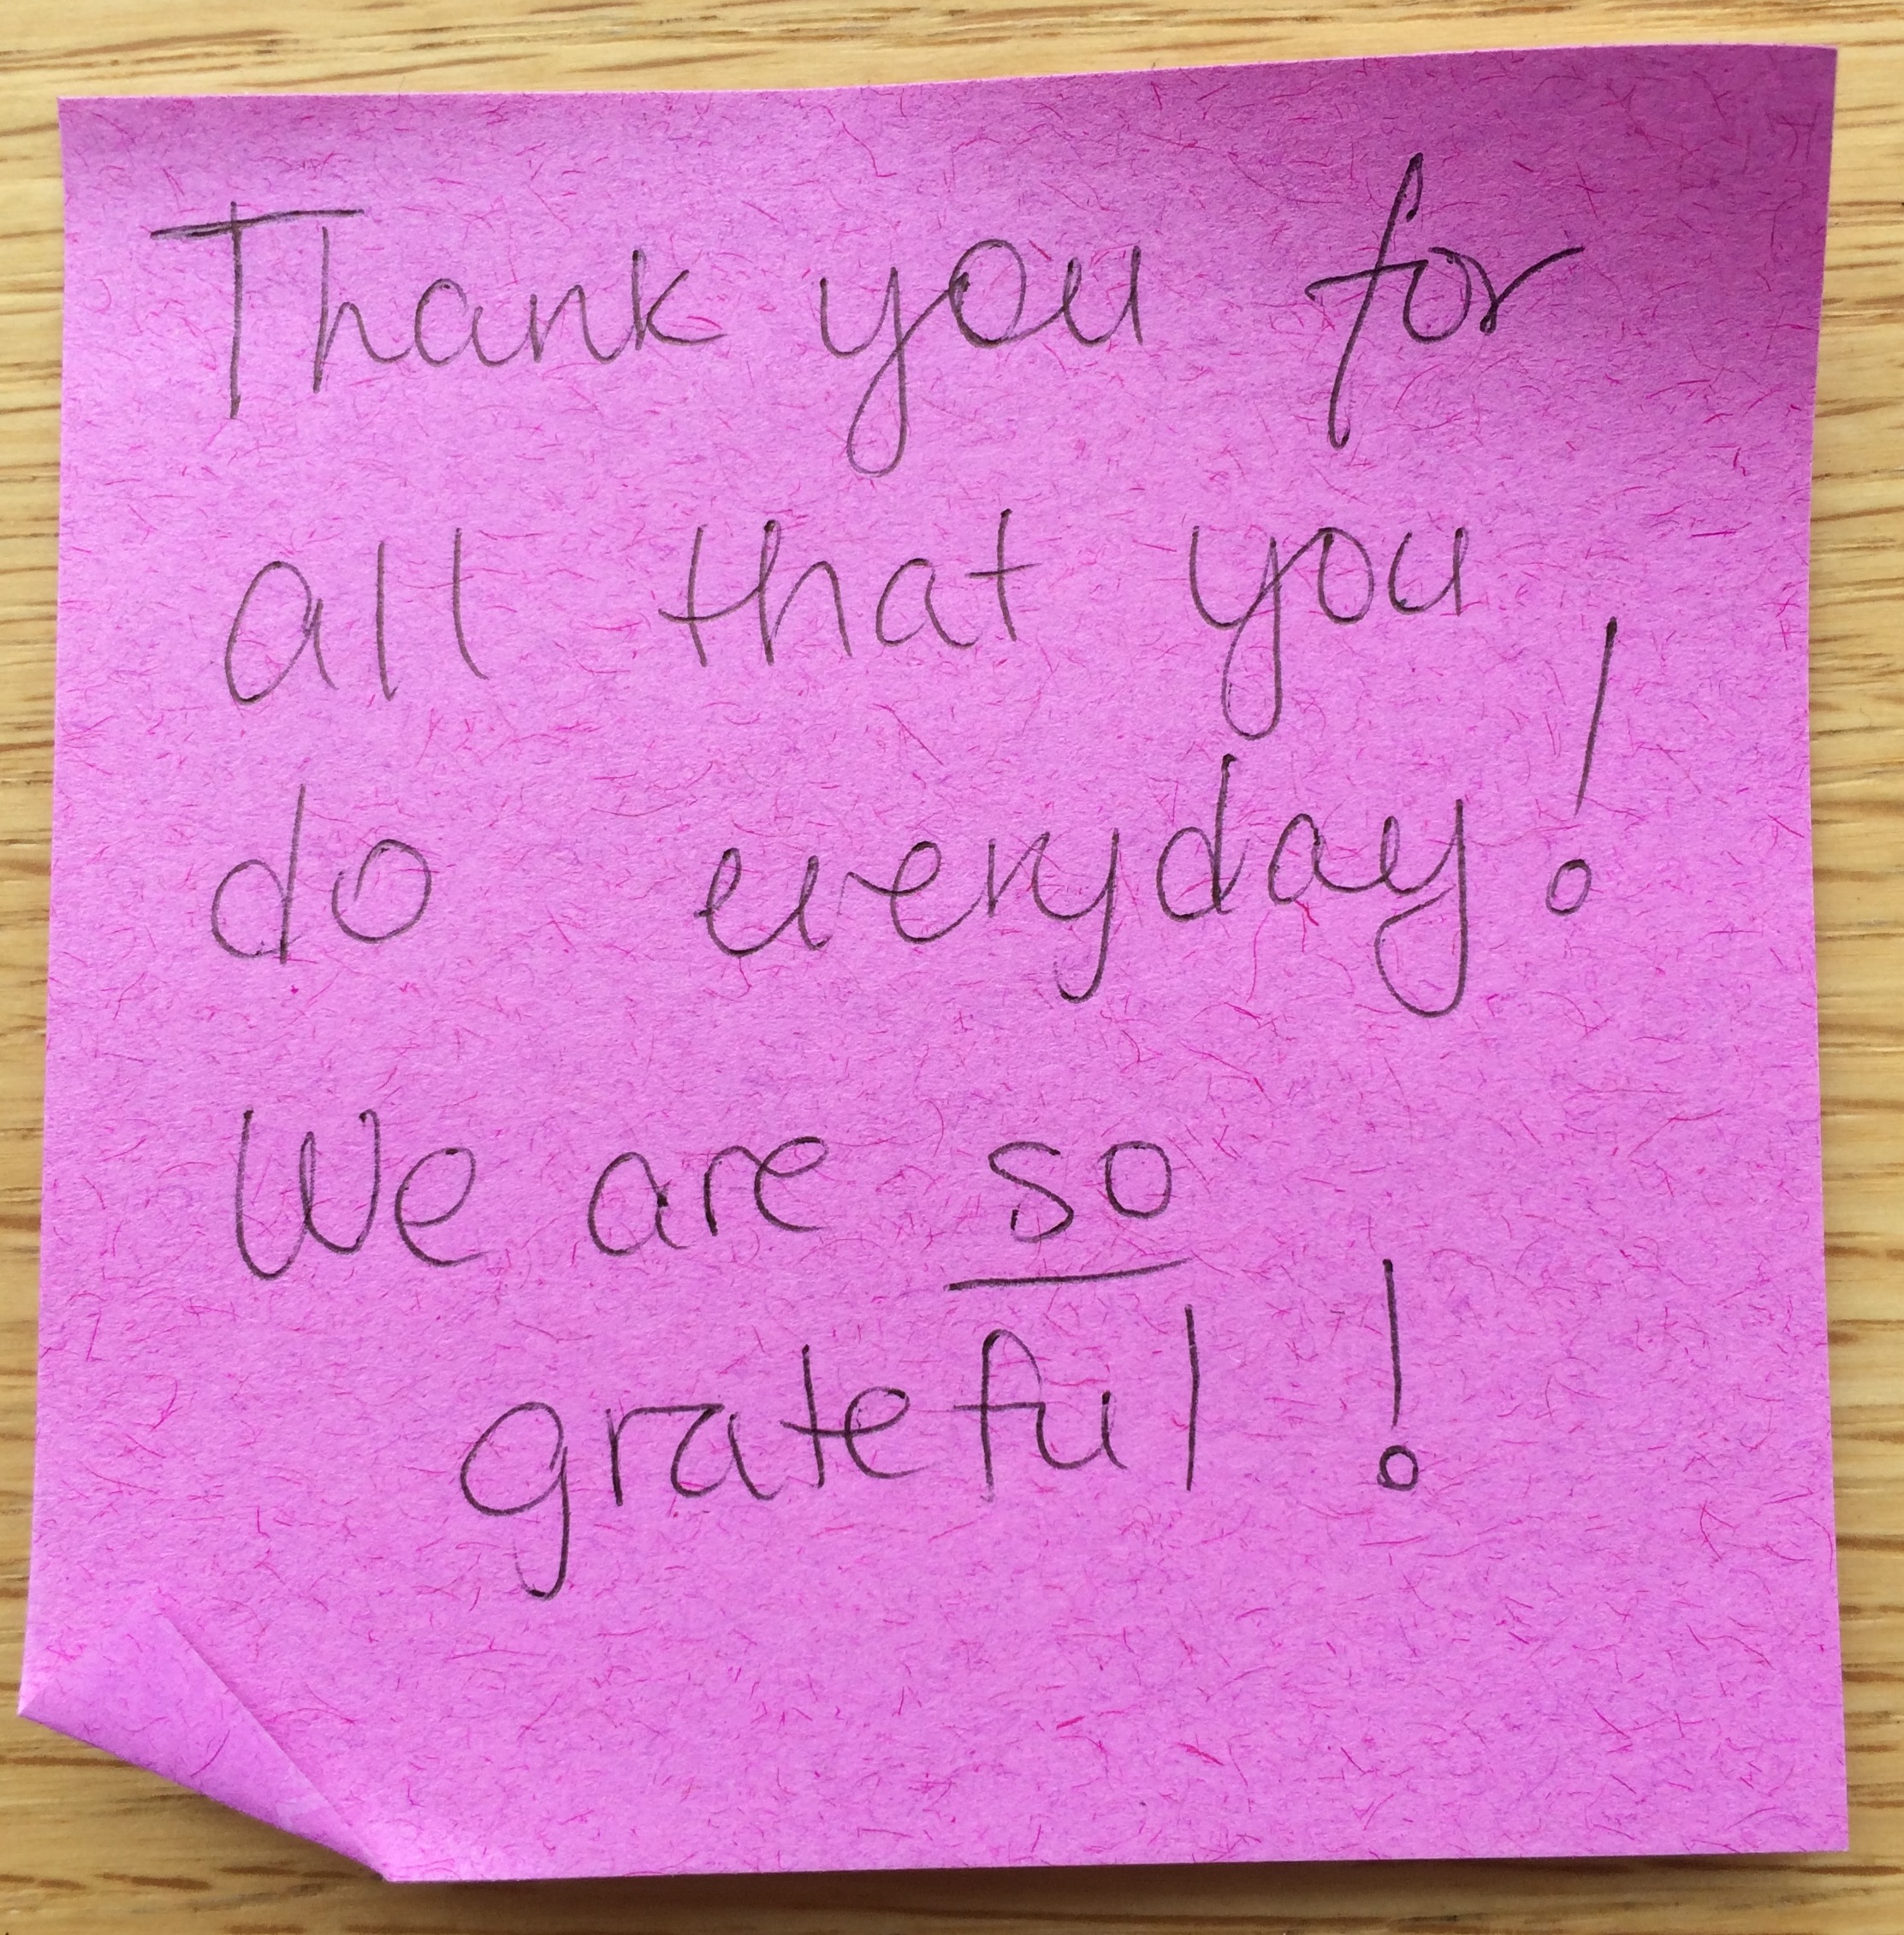 Thank you for
all that you
do everyday!
We are so
grateful!